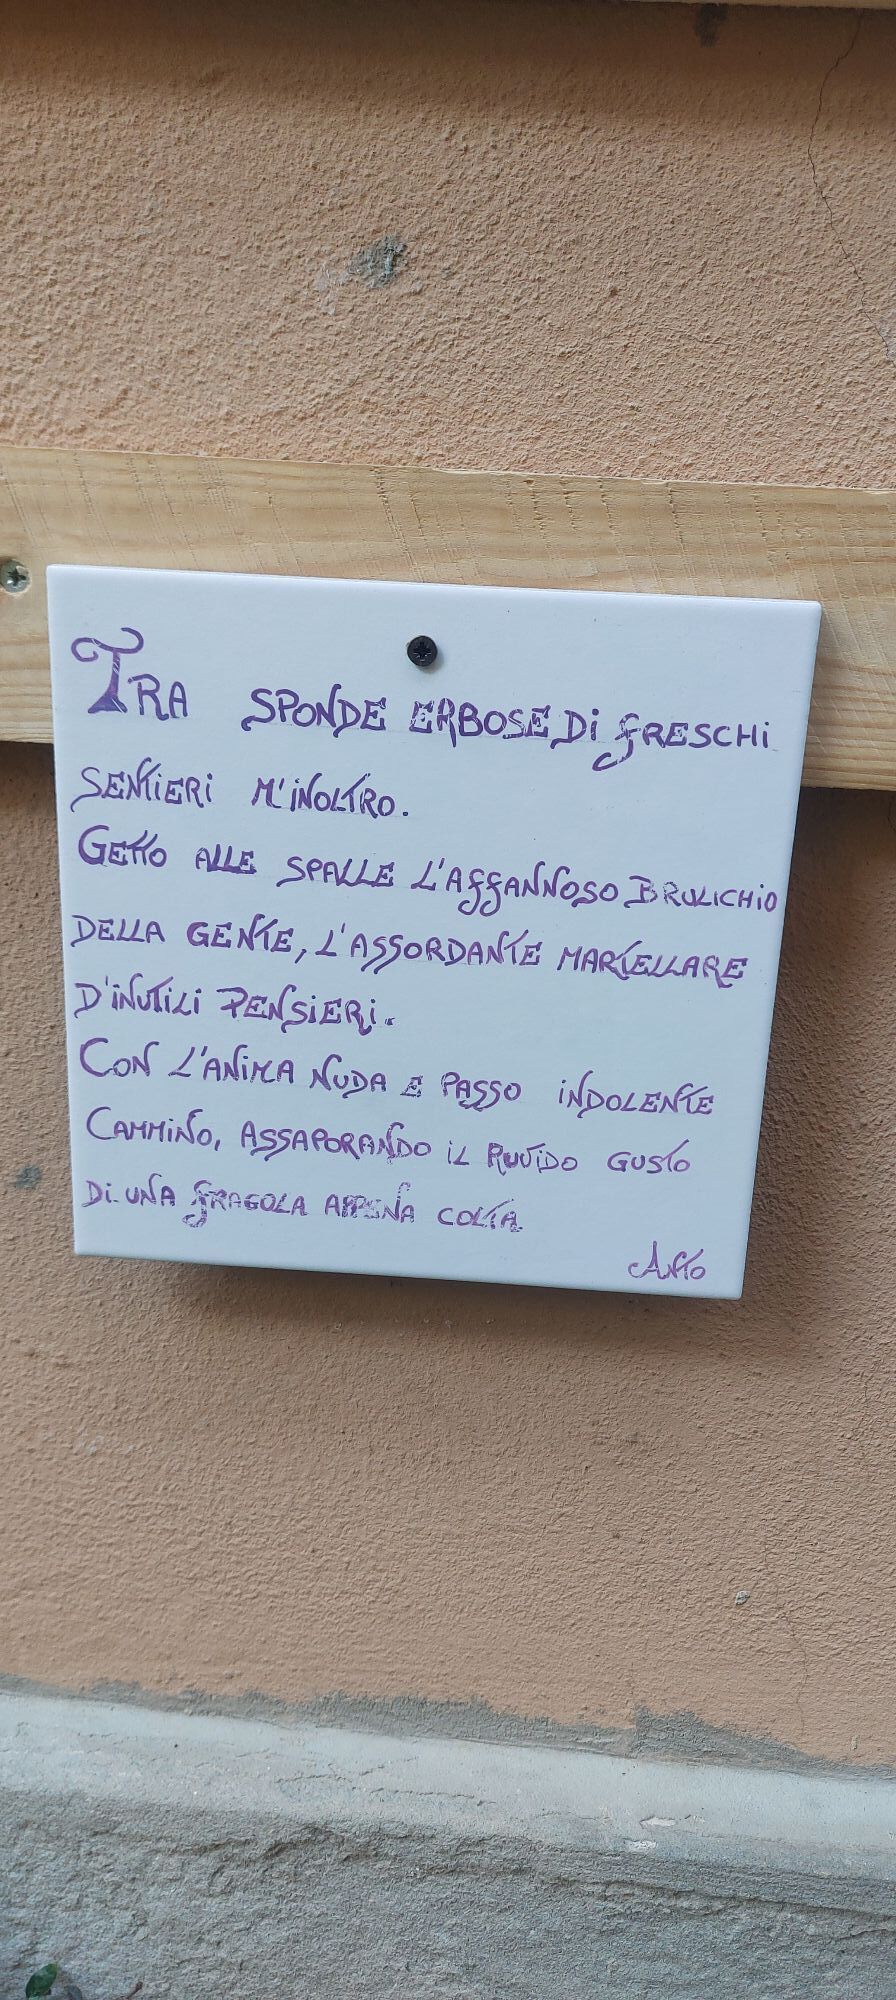 TRA SPONDE ERBOSE Di fRESCHi
SENTiERi M'iNOLTRO.
GETTO ALLE SPALLE L'AffANNOSO BRULICHiO
DELLA GENTE, L'ASSORDANTE MARTELLARE
D'iNUTiLi PENSiERi.
CON L'ANiMA NUDA E PASSO iNDOLENTE
CAMMiNO, ASSAPORANDO iL RUViDO GUSTO
Di UNA fRAGOLA APPENA COLTA.
ANTO